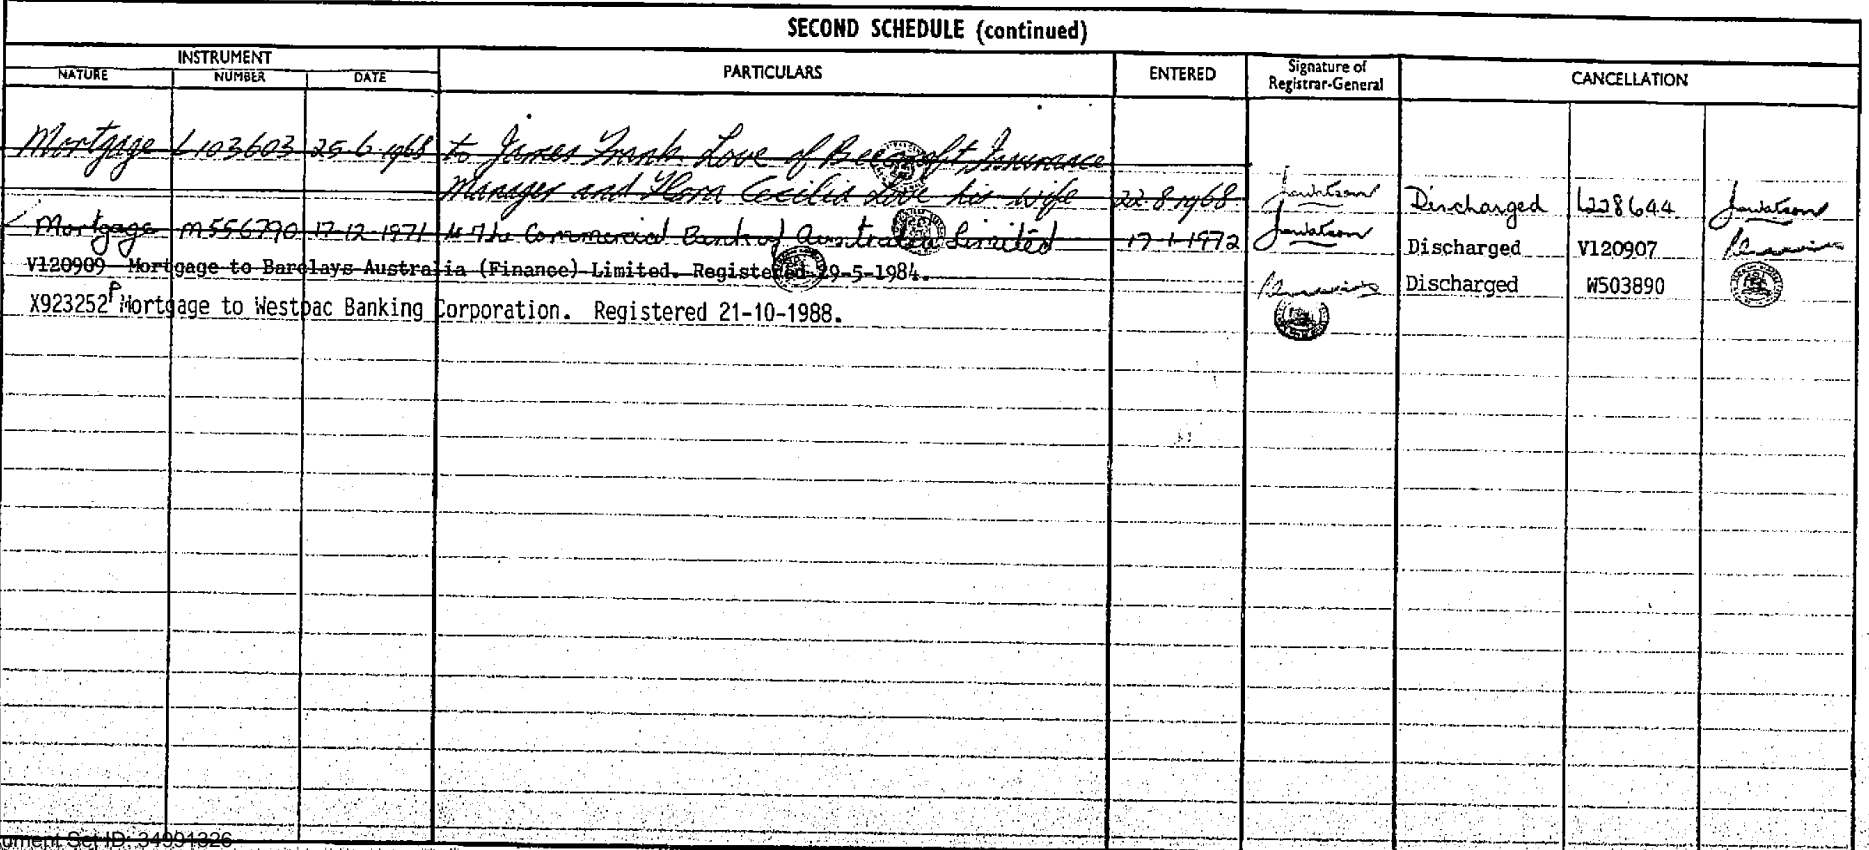 SECOND SCHEDULE (continued)
INSTRUMENT
NATURE NUMBER DATE PARTICULARS ENTERED Signature of Registrar-General CANCELLATION
Mortgage L103603 25-6-1968 to James Frank Love of Beecroft Insurance
Manager and Flora Cecilia Love his wife 22-8-1968 Jawatson Discharged L228644 Jawatson
Mortgage M556790 17-12-1971 to The Commercial Bank of Australia Limited 17-1-1972 Jawatson Discharged V120907
V120909 Mortgage to Barclays Australia (Finance) Limited. Registered 29-5-1984. Discharged W503890
X923252P Mortgage to Westpac Banking Corporation. Registered 21-10-1988.
ument Set ID: 34991326